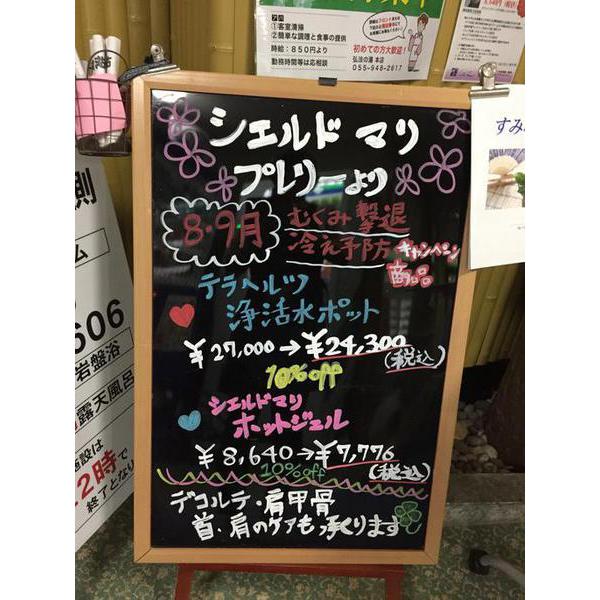 ア内
①客室清掃
②簡単な調理と食事の提供
時給：850円より
勤務時間等は応相談
初めての方大歓迎！
弘法の湯 本店
055-948-2617
シエルド マリ
プレリーより
8・9月
むくみ撃退
冷え予防 キャンペーン
商品
テラヘルツ
浄活水ポット
¥27,000→¥24,300
(税込)
10%off
シエルドマリ
ホットジェル
¥8,640→¥7,776
10%off
(税込)
デコルテ・肩甲骨
首、肩のケアも承ります
側
ム
606
岩盤浴
露天風呂
設は
2時で
終了とな
すみ